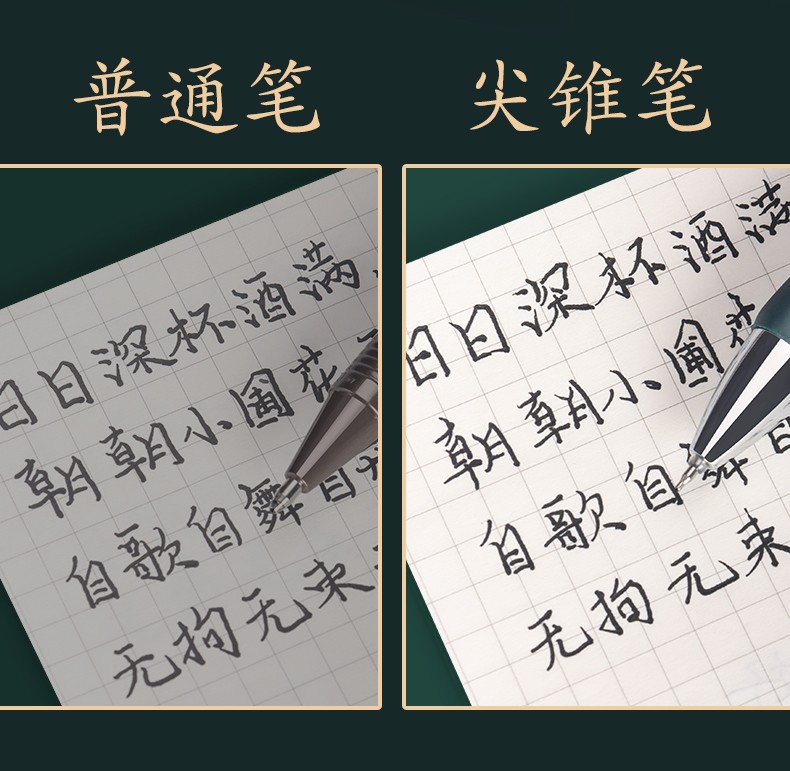 普通笔
尖锥笔
日日深杯酒满
朝朝小圃花
自歌自舞自
无拘无束
日日深杯酒满
朝朝小圃花
自歌自舞自
无拘无束